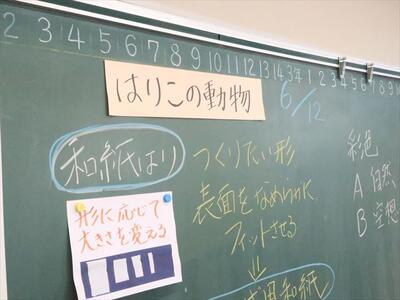 2 3 4 5 6 7 8 9 10 11 12 13 14 3年 1 2 3 4 5 6 7 8 9
はりこの動物
6/12
和紙はり
形に応じて
大きさを変える
つくりたい形
表面をなめらかに
フィットさせる
彩色
A 自然
B 空想